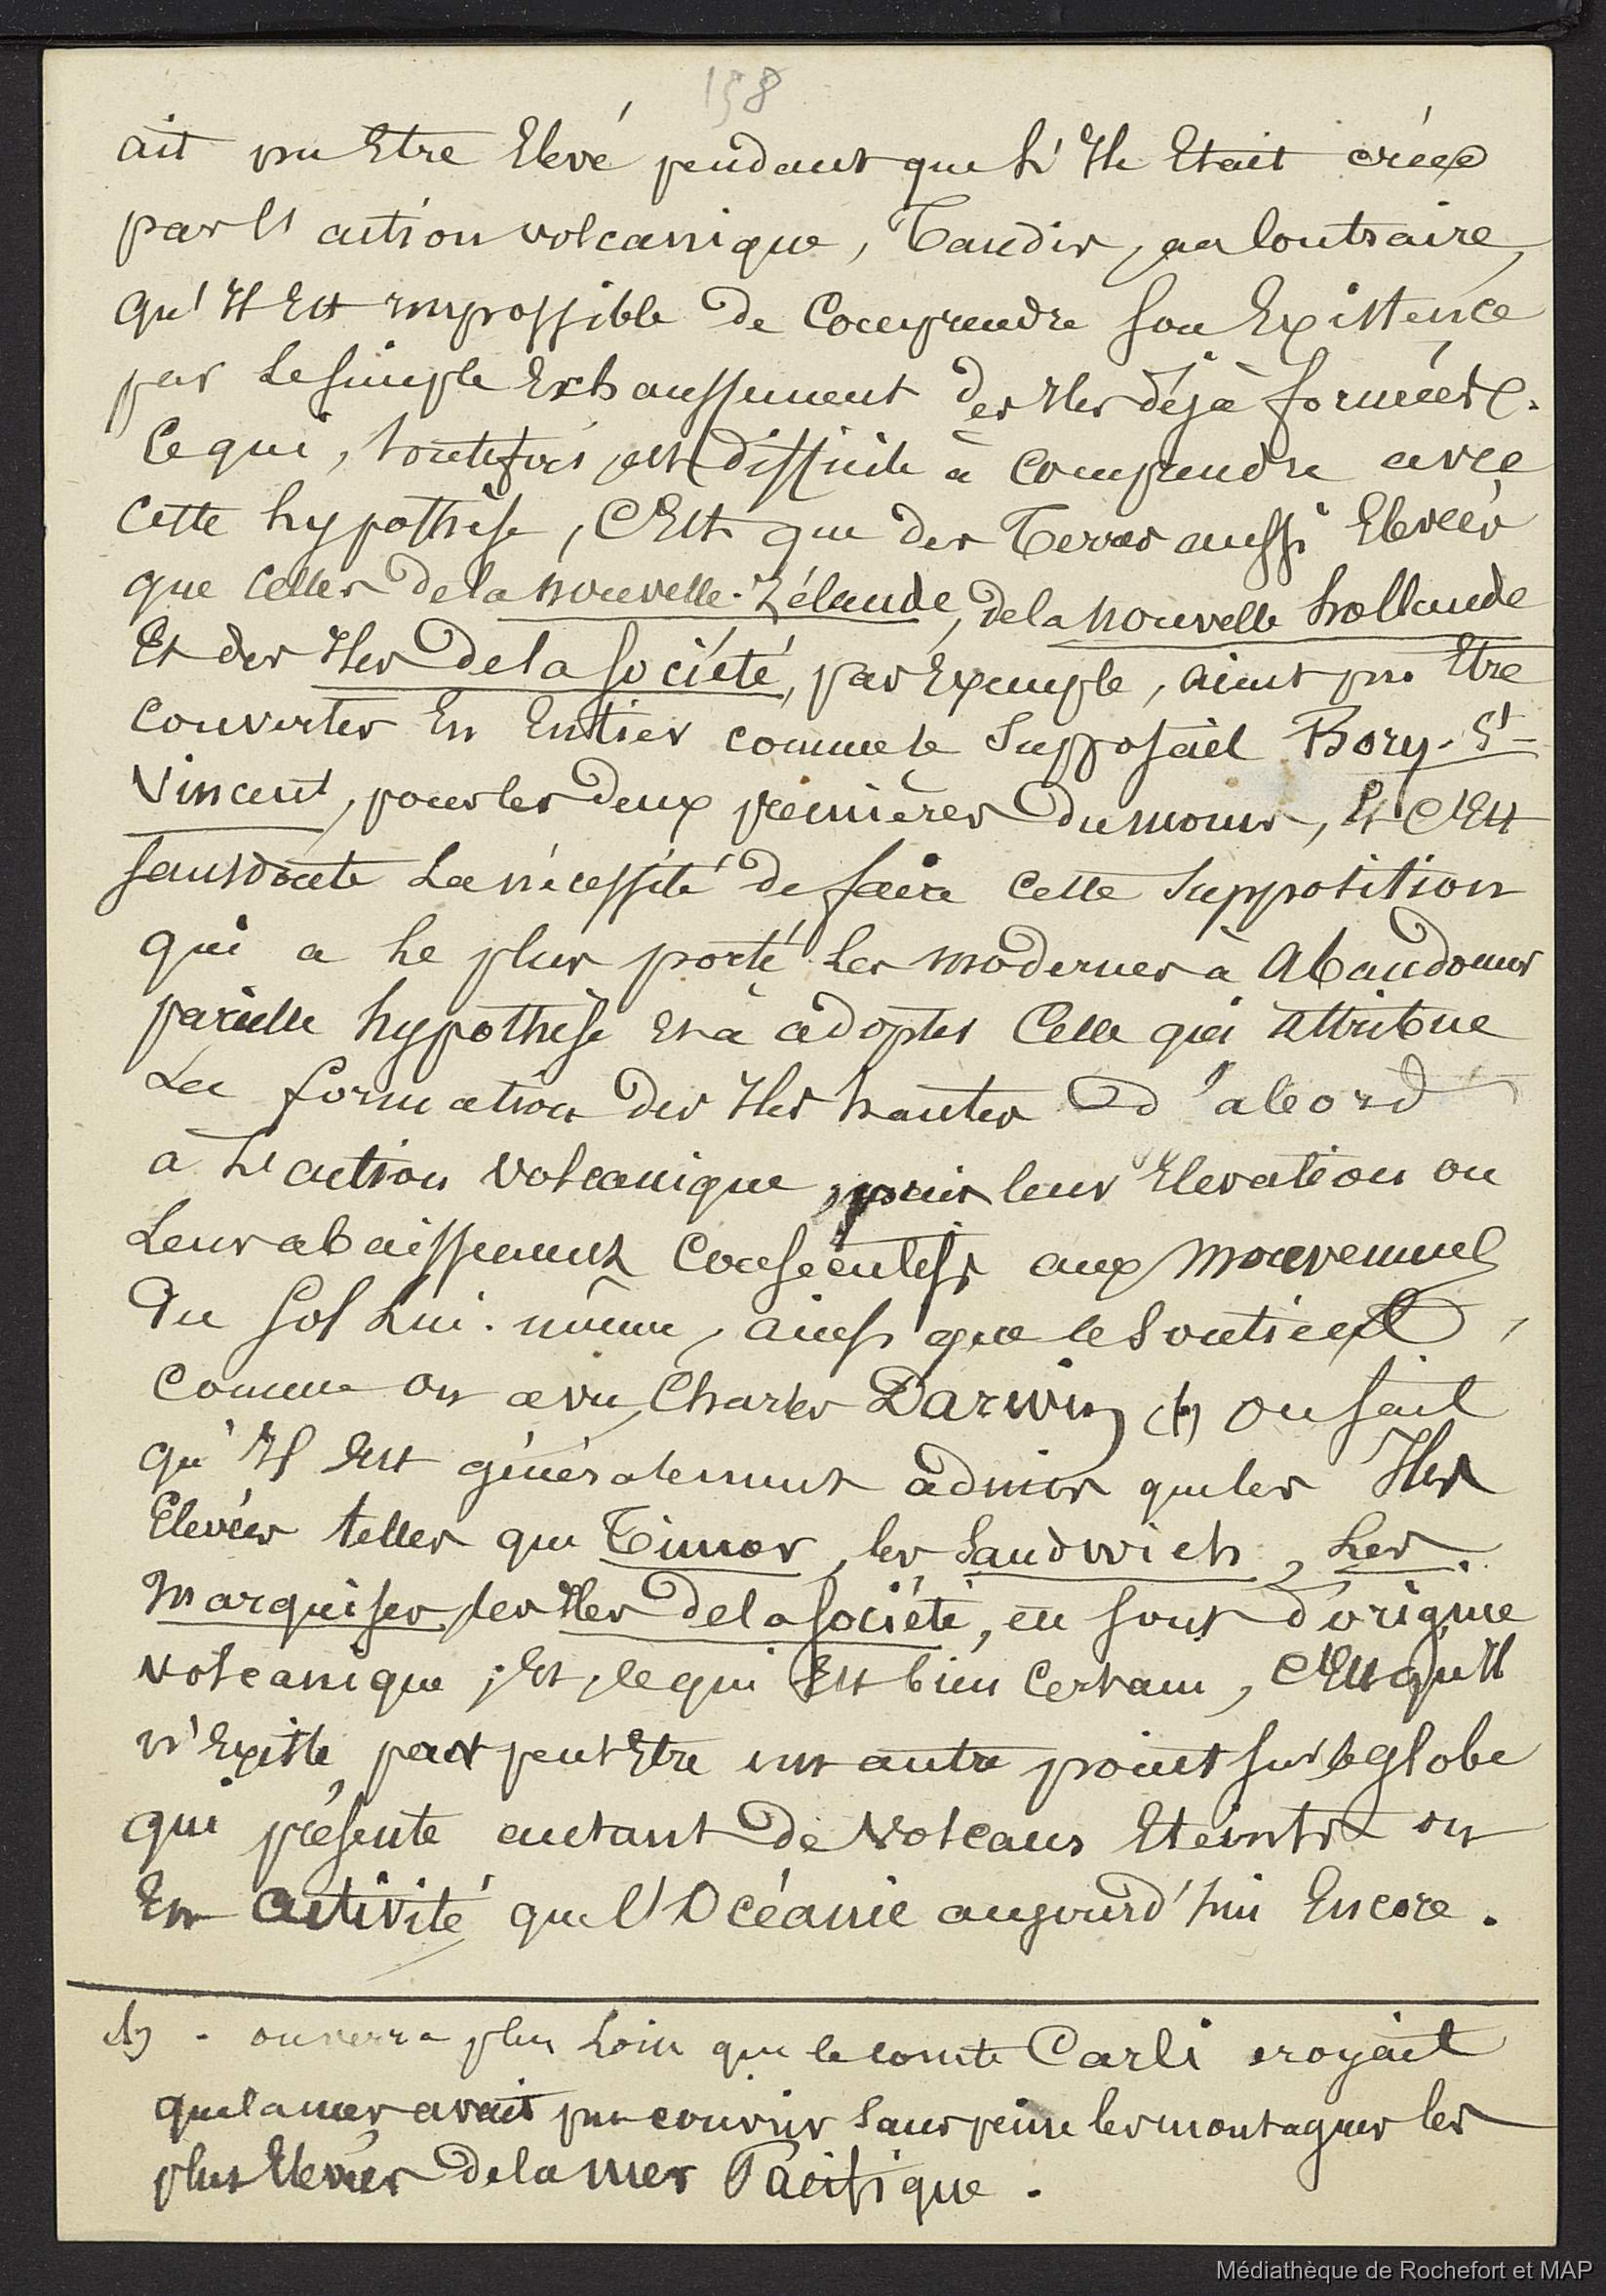 158
ait pu Etre Elevé pendant que L'Ile Etait créée
par L'action volcanique, Tandis, au Contraire,
qu'Il Est impossible de Comprendre son Existence
par le simple Exhaussement des Iles déjà formées.
Ce qui, toutefois, est difficile à comprendre avec
cette hypothèse, C'Est que des Terres aussi Elevées
que Celles de la nouvelle-Zélande, de la nouvelle hollande
Et des Iles de la Société, par Exemple, aient pu Etre
couvertes En Entier comme le Supposait Bory-St-
Vincent, pour les deux premières du moins, Et C'Est
sans doute La nécessité de faire cette Supposition
qui a Le plus porté Les modernes à Abandonner
pareille hypothèse Et à adopter Celle qui attribue
La formation des Iles hautes d'abord
à L'action volcanique, puis leur Elevation ou
Leur abaissement Consécutifs aux mouvements
du Sol Lui-même, ainsi que le Soutient,
comme on a vu, Charles Darwin (1) on sait
qu'Il Est généralement admis que les Iles
Elevées telles que Timor, les Sandwich, Les
Marquises, les Iles de la Société, en sont d'origine
volcanique ; Et, ce qui Est bien Certain, C'Est qu'Il
n'Existe pas peut Etre un autre point sur le globe
qui présente autant de Volcans Eteints ou
En activité que l'Océanie aujourd'hui Encore.
(1) - on verra plus Loin que le comte Carli croyait
que la mer avait pu couvrir sans peine les montagnes les
plus Elevées de la mer Pacifique.
Médiathèque de Rochefort et MAP